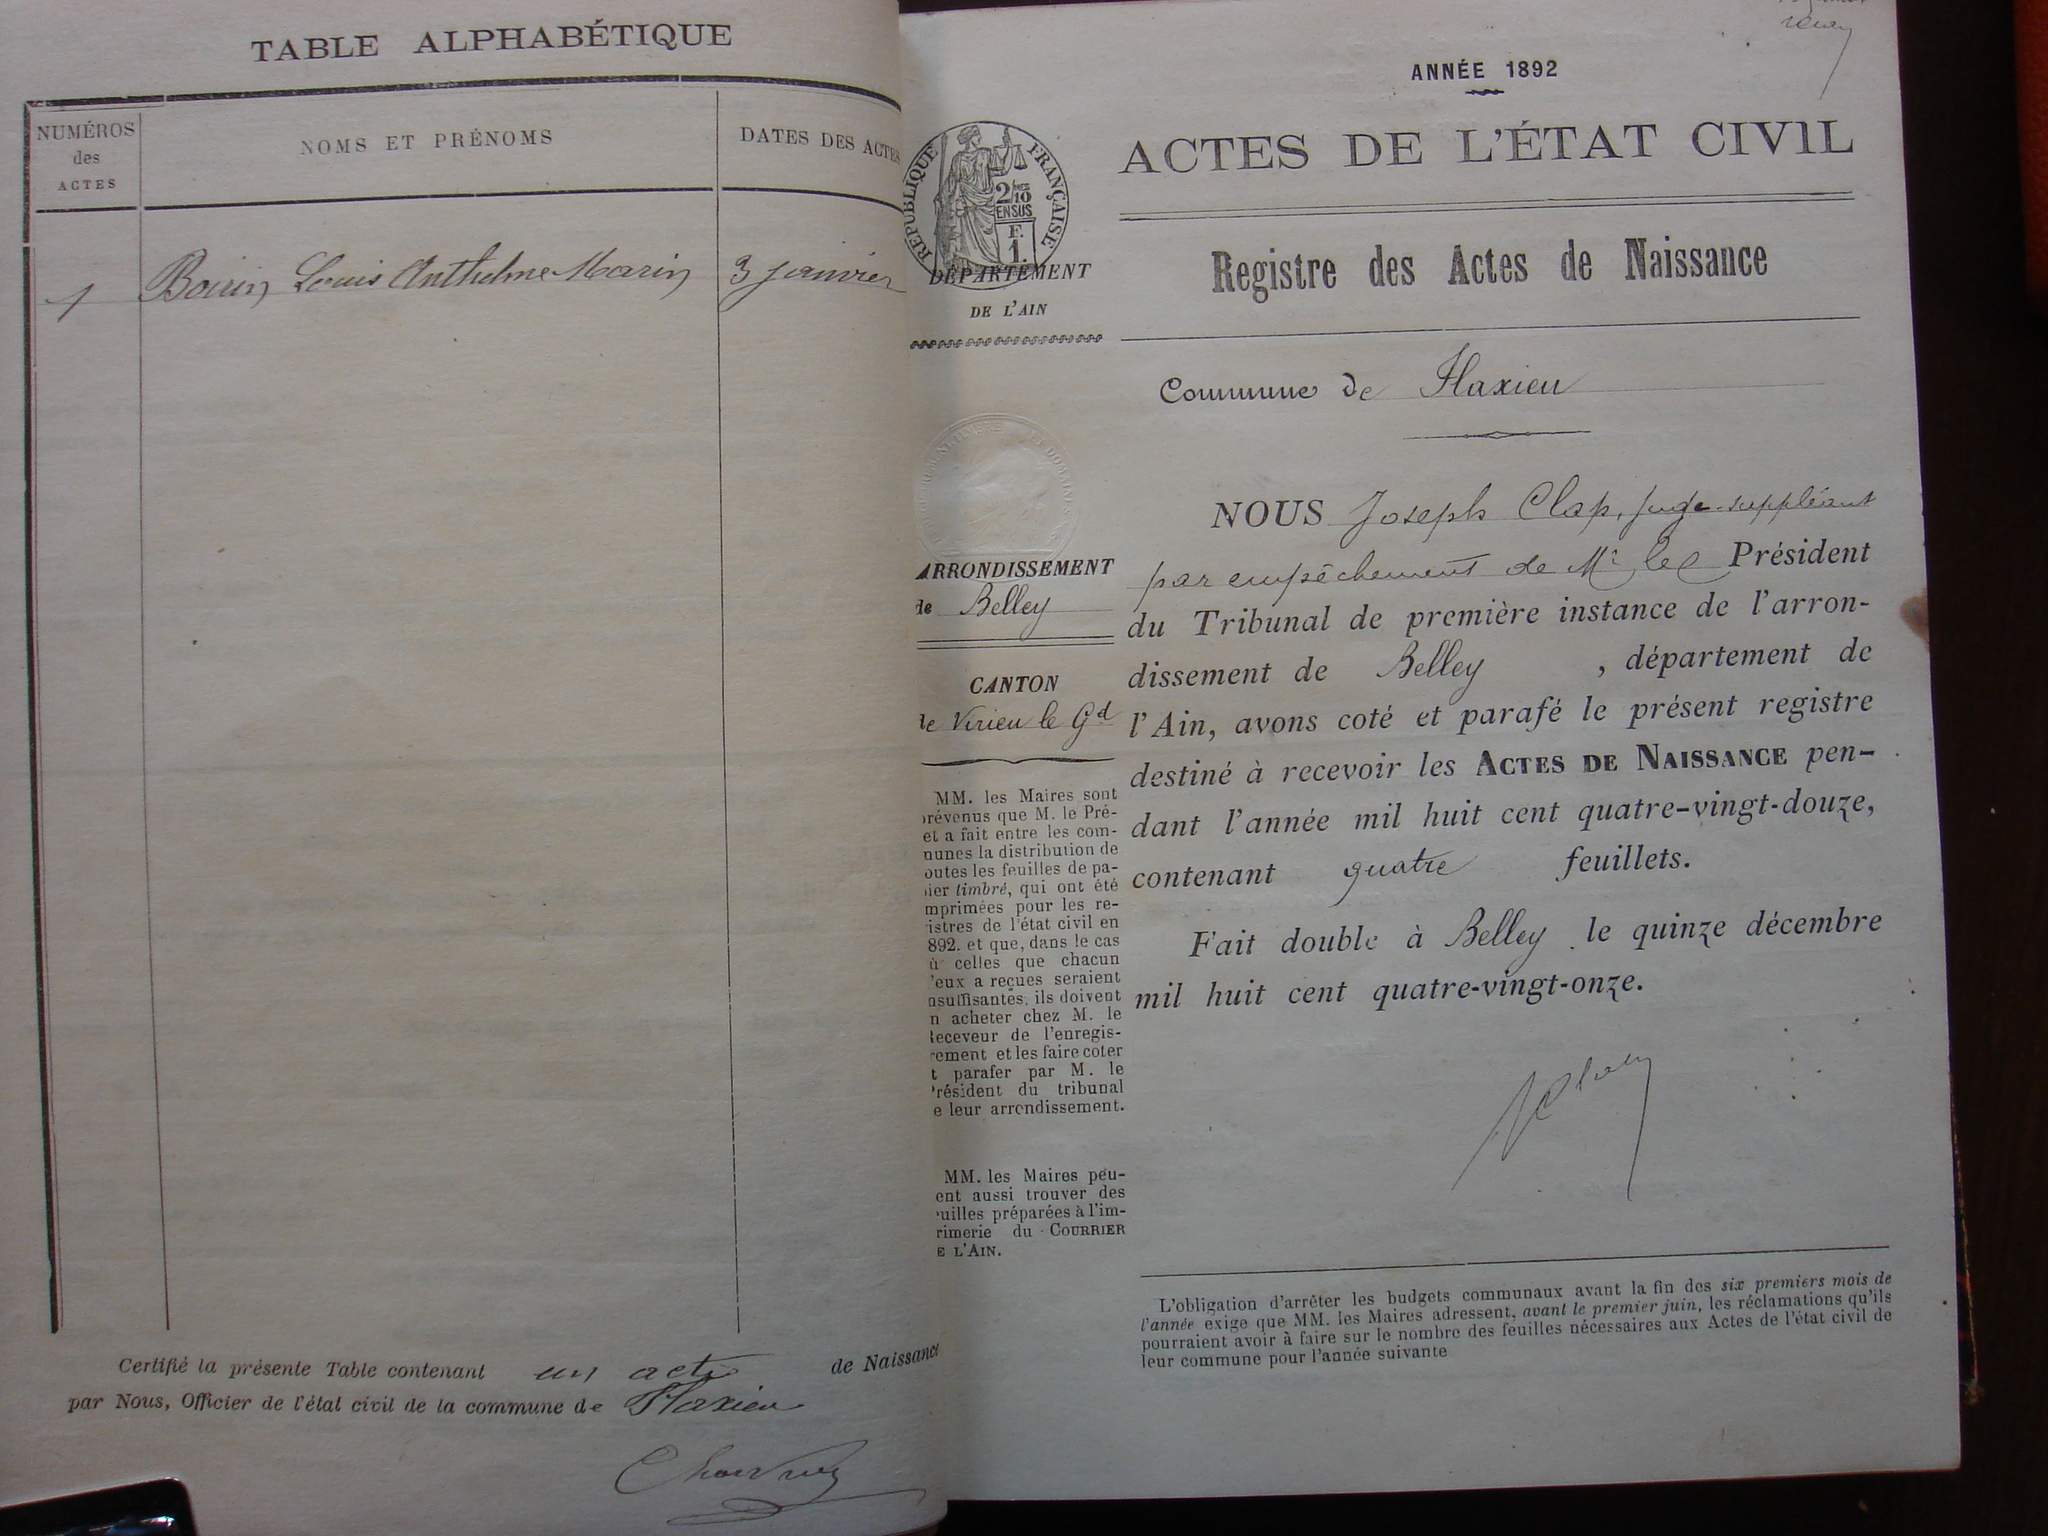 TABLE ALPHABÉTIQUE
NUMÉROS
des
ACTES
NOMS ET PRÉNOMS
DATES DES ACTES
1 Boirin Louis Anthelme Marin 3 janvier
Certifié la présente Table contenant un acte de Naissance
par Nous, Officier de l'état civil de la commune de Flaxieu
ANNÉE 1892
RÉPUBLIQUE FRANÇAISE
2/10
EN SUS
F.
1.
DÉPARTEMENT
DE L'AIN
ACTES DE L'ÉTAT CIVIL
Registre des Actes de Naissance
Commune de Flaxieu
ARRONDISSEMENT
de Belley
CANTON
de Virieu le Gd
MM. les Maires sont
prévenus que M. le Pré-
et a fait entre les com-
munes la distribution de
outes les feuilles de pa-
pier timbré, qui ont été
mprimées pour les re-
istres de l'état civil en
892. et que, dans le cas
ù celles que chacun
'eux a reçues seraient
nsuffisantes, ils doivent
n acheter chez M. le
Receveur de l'enregis-
rement et les faire coter
t parafer par M. le
Président du tribunal
e leur arrondissement.
MM. les Maires peu-
ent aussi trouver des
uilles préparées à l'im-
rimerie du COURRIER
E L'AIN.
NOUS Joseph Clap, juge-suppléant
par empêchement de Mr le Président
du Tribunal de première instance de l'arron-
dissement de Belley , département de
l'Ain, avons coté et parafé le présent registre
destiné à recevoir les ACTES DE NAISSANCE pen-
dant l'année mil huit cent quatre-vingt-douze,
contenant quatre feuillets.
Fait double à Belley le quinze décembre
mil huit cent quatre-vingt-onze.
L'obligation d'arrêter les budgets communaux avant la fin des six premiers mois de
l'année exige que MM. les Maires adressent, avant le premier juin, les réclamations qu'ils
pourraient avoir à faire sur le nombre des feuilles nécessaires aux Actes de l'état civil de
leur commune pour l'année suivante